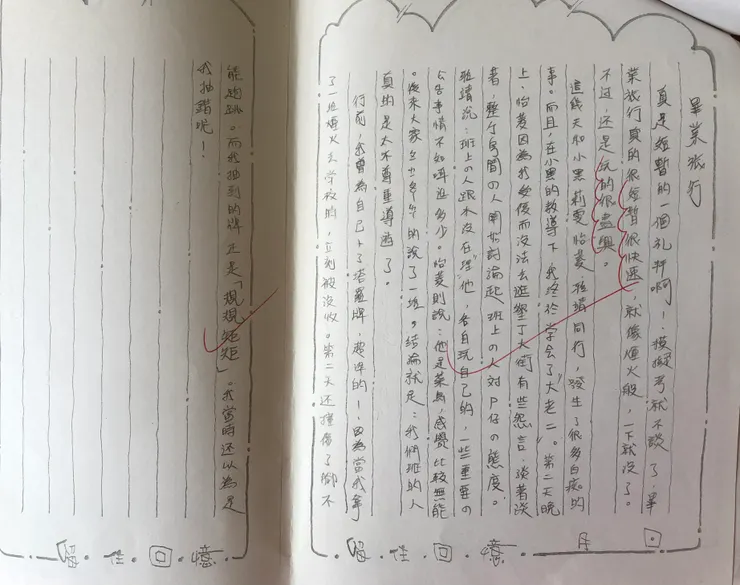 畢業旅行
真是短暫的一個礼拜啊！模擬考就不談了，畢
業旅行真的很短暫很快速，就像煙火般，一下就沒了。
不过，还是玩的很盡興。
這幾天和小黑、莉雯、怡菱、雅靖同行，發生了很多白痴的
事。而且，在小黑的教導下，我終於學会了"大老二"。第二天晚
上，怡菱因為我受傷而沒法去逛墾丁大街有些怨言，談著談
著，整个房間の人開始討論起班上の人对P仔の態度。
班靖説：班上の人跟本沒在"理"他，各自玩自己的，一些重要の
公告事情不知哩近多少。怡菱則說：他是菜鳥，感覺比較無能
。後來大家七七八八的說了一堆。結論就是：我們班的人
真的是太不尊重導遊了。
行前，我曾為自己卜了塔羅牌，蠻準的！因為當我拿
了一堆煙火去学校時，立刻被沒收。第二天还撞傷了腳不
能跑跳。而我抽到的牌正是「規規矩矩」。我當時还以為是
我抽錯呢！
月 日
留住回憶
留住回憶